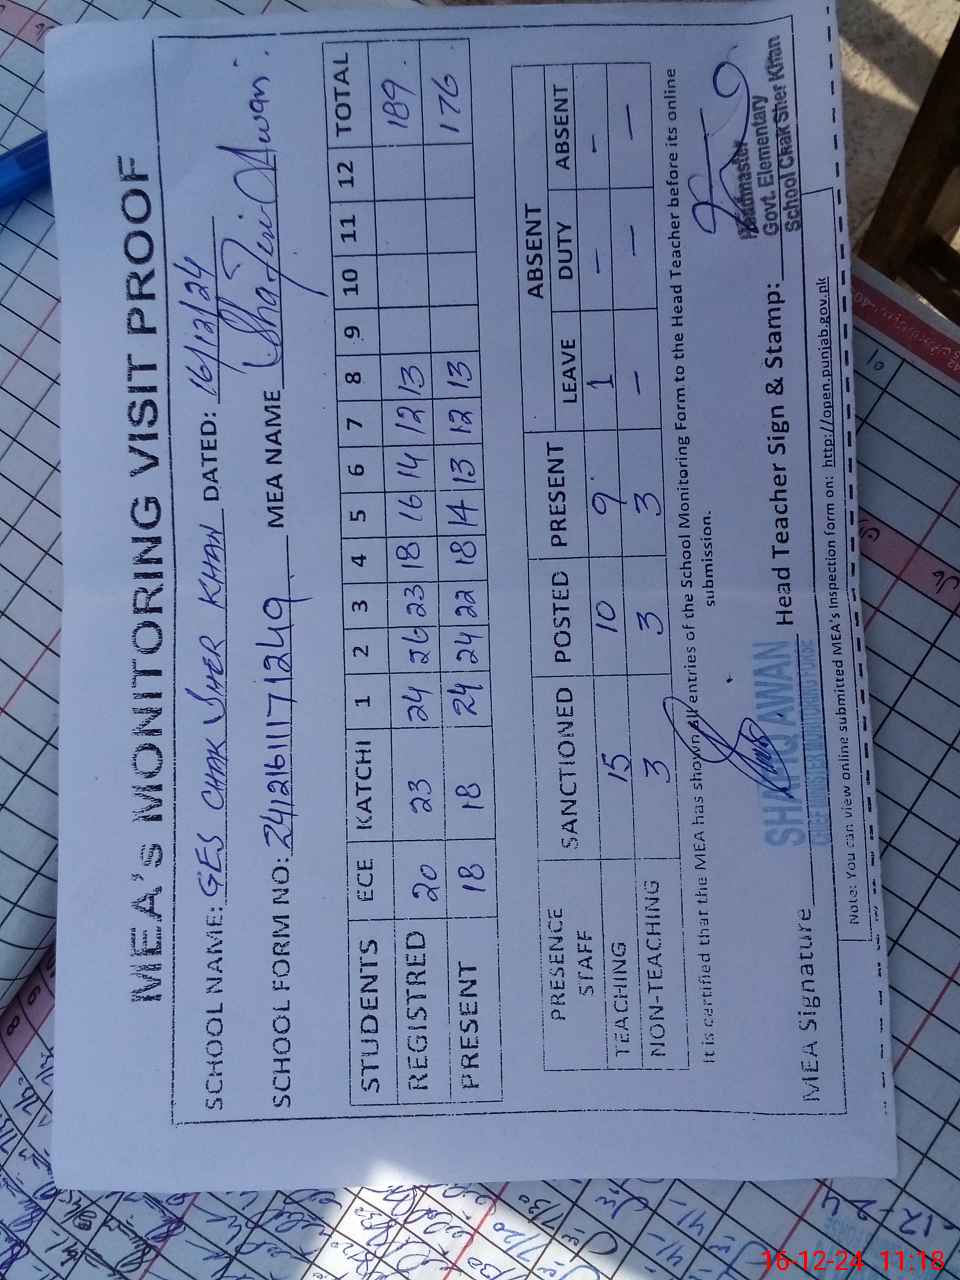 MEA's MONITORING VISIT PROOF
SCHOOL NAME: GES CHAK SHER KHAN DATED: 16/12/24
SCHOOL FORM NO: 24126111171249 MEA NAME Shafiq Awan.
STUDENTS ECE KATCHI 1 2 3 4 5 6 7 8 9 10 11 12 TOTAL
REGISTRED 20 23 24 26 23 18 16 14 12 13 189
PRESENT 18 18 24 24 22 18 14 13 12 13 176
PRESENCE STAFF SANCTIONED POSTED PRESENT ABSENT
LEAVE DUTY ABSENT
TEACHING 15 10 9 1 - -
NON-TEACHING 3 3 3 - - -
It is certified that the MEA has shown all entries of the School Monitoring Form to the Head Teacher before its online
submission.
SHAFIQ AWAN
CHIEF MINISTER MONITORING FORCE
Headmaster
Govt. Elementary
School Chak Sher Khan
MEA Signature Head Teacher Sign & Stamp:
Note: You can view online submitted MEA's Inspection form on: http://open.punjab.gov.pk
16-12-24 11:18